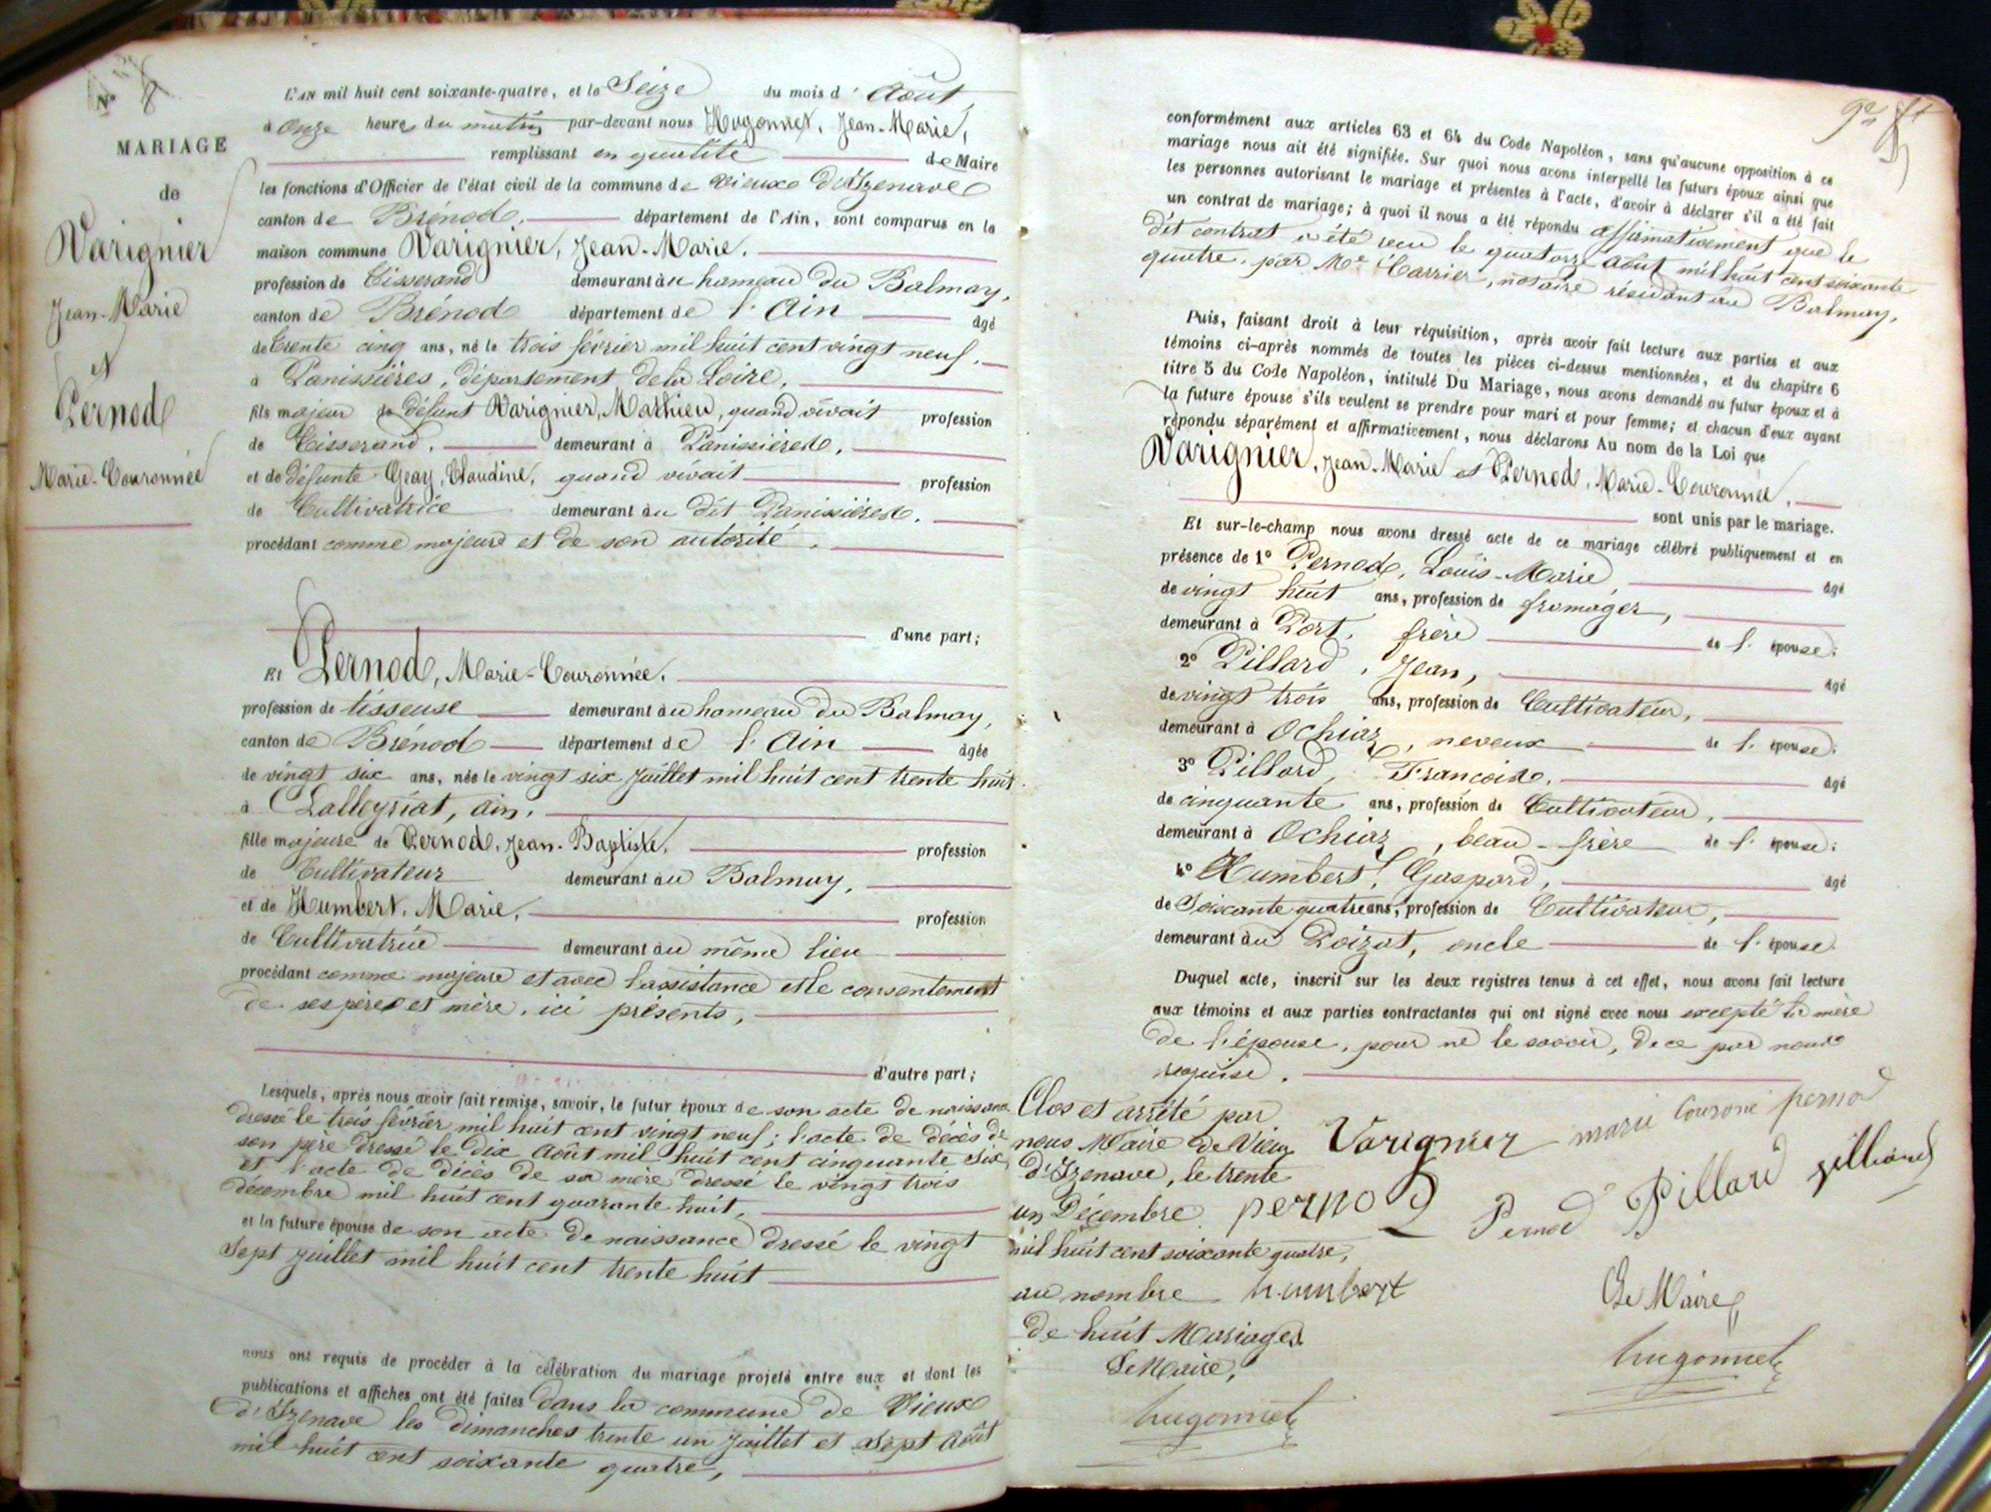 N° 8
MARIAGE
de
Varignier
Jean-Marie
et
Pernod
Marie-Couronnée
L'AN mil huit cent soixante-quatre, et le Seize du mois d'Août,
à onze heures du matin par-devant nous Hugonnet, Jean-Marie,
remplissant en qualité de Maire
les fonctions d'Officier de l'état civil de la commune de Vieux d'Izenave
canton de Brénod, département de l'Ain, sont comparus en la
maison commune Varignier, Jean-Marie.
profession de tisserand demeurant au hameau du Balmay,
canton de Brénod département de l'Ain âgé
de trente cinq ans, né le trois février mil huit cent vingt neuf.
à Panissières, département de la Loire,
fils majeur de défunt Varignier, Mathieu, quand vivait profession
de Tisserand, demeurant à Panissières,
et de défunte Geay, Claudine, quand vivait profession
de Cultivatrice demeurant au dit Panissières.
procédant comme majeur et de son autorité.
d'une part;
Et Pernod, Marie-Couronnée.
profession de tisseuse demeurant au hameau du Balmay,
canton de Brénod département de l'Ain âgée
de vingt six ans, née le vingt six Juillet mil huit cent trente huit
à Lalleyriat, ain,
fille majeure de Pernod, Jean-Baptiste, profession
de Cultivateur demeurant au Balmay,
et de Humbert, Marie, profession
de Cultivatrice demeurant au même lieu
procédant comme majeure et avec l'assistance et le consentement
de ses père et mère, ici présents,
d'autre part;
Lesquels, après nous avoir fait remise, savoir, le futur époux de son acte de naissance
dressé le trois février mil huit cent vingt neuf; l'acte de décès de
son père dressé le dix Août mil huit cent cinquante six
et l'acte de décès de sa mère dressé le vingt trois
décembre mil huit cent quarante huit,
et la future épouse de son acte de naissance dressé le vingt
sept juillet mil huit cent trente huit
nous ont requis de procéder à la célébration du mariage projeté entre eux et dont les
publications et affiches ont été faites dans la commune de Vieux
d'Izenave les dimanches trente un Juillet et sept Août
mil huit cent soixante quatre,
conformément aux articles 63 et 64 du Code Napoléon, sans qu'aucune opposition à ce
mariage nous ait été signifiée. Sur quoi nous avons interpellé les futurs époux ainsi que
les personnes autorisant le mariage et présentes à l'acte, d'avoir à déclarer s'il a été fait
un contrat de mariage; à quoi il nous a été répondu affirmativement que le
dit contrat a été reçu le quatorze Août mil huit cent soixante
quatre, par Me Carrier, notaire résidant au Balmay.
Puis, faisant droit à leur réquisition, après avoir fait lecture aux parties et aux
témoins ci-après nommés de toutes les pièces ci-dessus mentionnées, et du chapitre 6
titre 5 du Code Napoléon, intitulé Du Mariage, nous avons demandé au futur époux et à
la future épouse s'ils veulent se prendre pour mari et pour femme; et chacun d'eux ayant
répondu séparément et affirmativement, nous déclarons Au nom de la Loi que
Varignier, Jean-Marie et Pernod, Marie-Couronnée,
sont unis par le mariage.
Et sur-le-champ nous avons dressé acte de ce mariage célébré publiquement et en
présence de 1° Pernod, Louis-Marie, âgé
de vingt huit ans, profession de fromager,
demeurant à Port, frère de l'épouse;
2° Pillard, Jean, âgé
de vingt trois ans, profession de Cultivateur,
demeurant à Ochiaz, neveux de l'épouse;
3° Pillard, François, âgé
de cinquante ans, profession de Cultivateur,
demeurant à Ochiaz, beau-frère de l'épouse;
4° Humbert, Gaspard, âgé
de Soixante quatre ans, profession de Cultivateur,
demeurant au Poizat, oncle de l'épouse.
Duquel acte, inscrit sur les deux registres tenus à cet effet, nous avons fait lecture
aux témoins et aux parties contractantes qui ont signé avec nous excepté la mère
de l'épouse, pour ne le savoir, de ce par nous
requise.
Varignier marie Couroné pernod
pernod Pernod Pillard pilliard
humbert
Le Maire,
hugonnet
Clos et arrêté par
nous Maire de Vieux
d'Izenave, le trente
un Décembre
mil huit cent soixante quatre,
au nombre
de huit Mariages.
Le Maire,
hugonnet